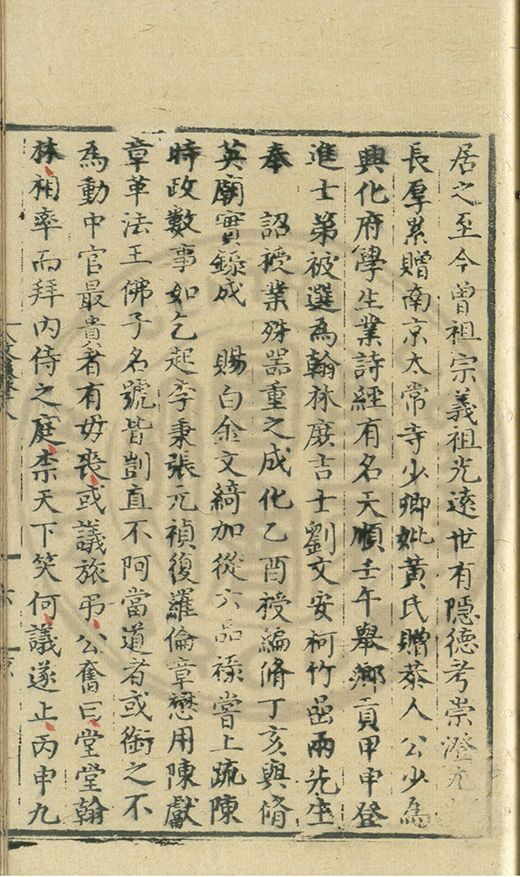 居之至今曾祖宗義祖光遠世有隱德考崇澄尤
長厚累贈南京太常寺少卿妣黃氏贈恭人公少爲
興化府學生業詩經有名天順壬午舉鄉貢甲申登
進士第被選爲翰林庶吉士劉文安柯竹嵒兩先生
奉 詔授業殊器重之成化乙酉授編脩丁亥與脩
英廟實錄成 賜白金文綺加從六品祿嘗上疏陳
時政數事如乞起李秉張元禎復羅倫章懋用陳獻
章革法王佛子名號皆剴直不阿當道者或銜之不
爲動中官最貴者有毋喪或議旅弔公奮曰堂堂翰
林相率而拜內侍之庭柰天下笑何議遂止丙申九